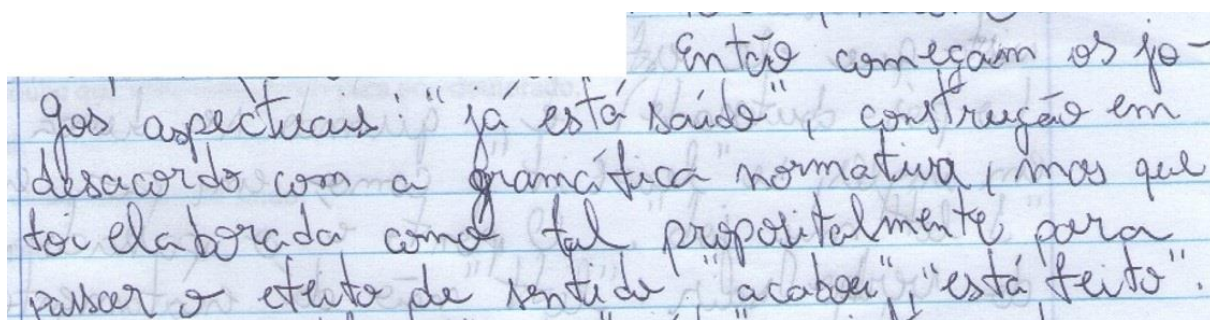 Então começam os jo-
gos aspectuais: "já está saído", construção em
desacordo com a gramática normativa, mas que
foi elaborada como tal propositalmente para
passar o efeito de sentido "acabou", "está feito".